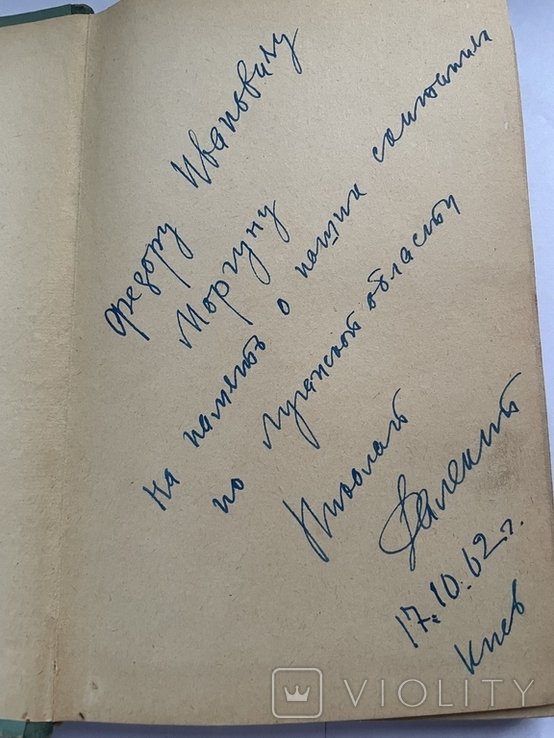 Федору Ивановичу
Моргуну
на память о наших
по Луганской области
Николай
17.10.62 г.
Киев
VIOLITY